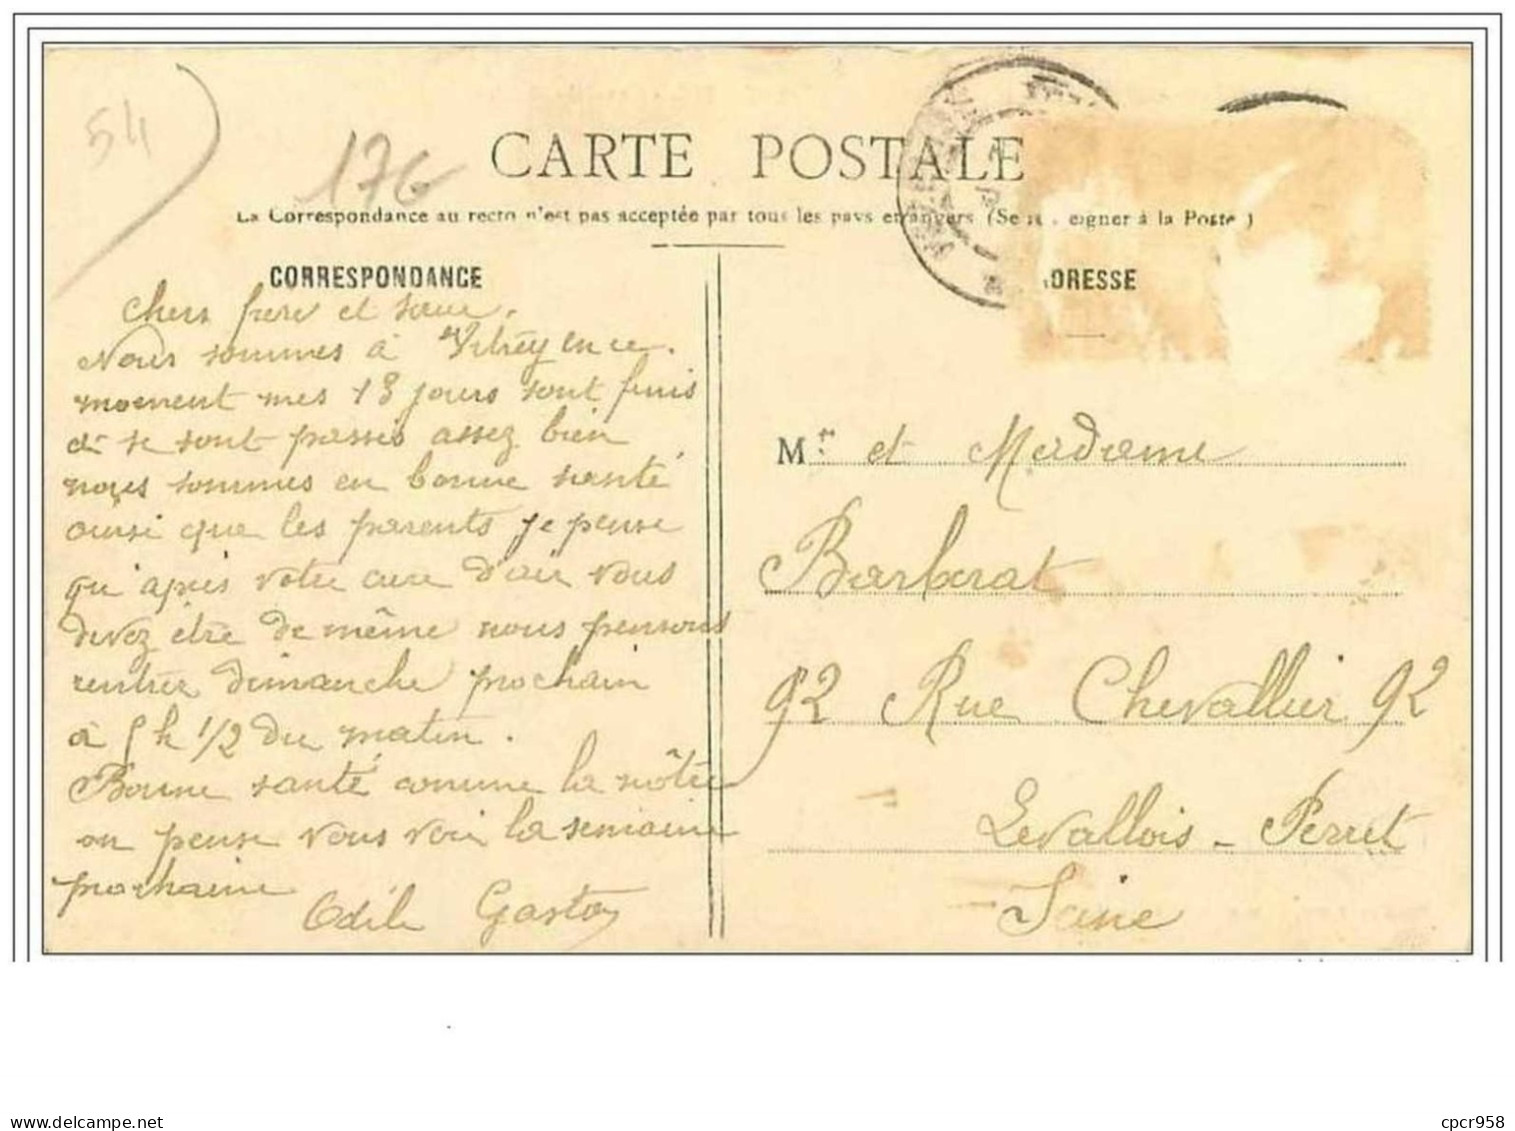 54
176
CARTE POSTALE
La Correspondance au recto n'est pas acceptée par tous les pays etrangers (Se eigner à la Poste)
CORRESPONDANCE
Chers frere et sœur.
Nous sommes à Vitrey en ce
moement mes 13 jours sont finis
et se sont passés assez bien
nous sommes en bonne santé
ainsi que les parents je pense
qu'après votre cure d'air vous
devez être de même nous pensons
rentrer dimanche prochain
à 5 h 1/2 du matin.
Bonne santé comme la nôtre
on pense vous voir la semaine
prochaine
Odile Gaston
DRESSE
Mr et Madame
Barbarat
92 Rue Chevallier 92
Levallois - Perret
Seine
delcampe.net
cpcr958